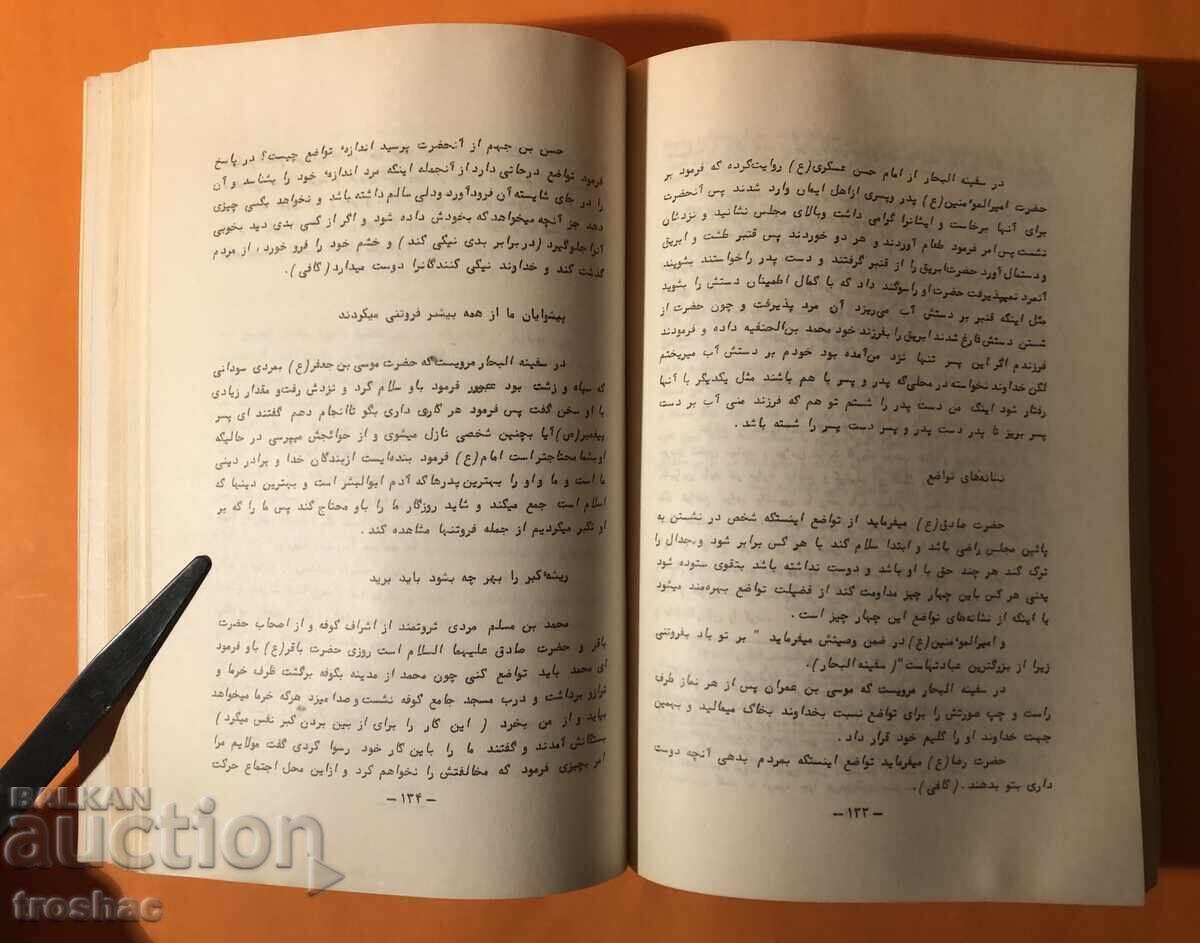 در سفینه البحار از امام حسن عسکری(ع) روایت‌کرده که فرمود بر
حضرت امیرالموٴمنین(ع) پدر وپسری ازاهل ایمان وارد شدند پس آنحضرت
برای آنها برخاست و ایشانرا گرامی داشت وبالای مجلس نشانید و نزدشان
نشست پس‌امر فرمود طعام آوردند و هر دو خوردند پس قنبر طشت و ابریق
ودستمال آورد حضرت‌ابریق را از قنبر گرفتند و دست پدر راخواستند بشویند
آنمرد نمیپذیرفت حضرت‌او راسوگند داد که با کمال اطمینان دستش را بشوید
مثل اینکه قنبر بر دستش آب می‌ریزد. آن مرد پذیرفت و چون حضرت از
شستن دستش‌فارغ شدند ابریق را بفرزند خود محمد بن‌الحنفیه داده و فرمودند
فرزندم اگر این پسر تنها نزد من‌آمده بود خودم بر دستش آب میریختم
لکن خداوند نخواسته در محلی‌که پدر و پسر با هم باشند مثل یکدیگر با آنها
رفتار شود اینک من دست پدر را شستم تو هم که فرزند منی آب بر دست
پسر بریز تا پدر دست پدر و پسر دست پسر را شسته باشد.
نشانه‌های تواضع
حضرت صادق(ع) میفرماید از تواضع اینستکه شخص در نشستن به
پائین مجلس راضی باشد و ابتدا سلام کند با هر کس برابر شود و جدال را
ترک کند هر چند حق با او باشد و دوست نداشته باشد بتقوی ستوده شود
یعنی هر کس باین چهار چیز مداومت کند از فضیلت تواضع بهره‌مند میشود
یا اینکه از نشانه‌های تواضع این چهار چیز است.
و امیرالموٴمنین(ع) در ضمن وصیتش میفرماید " بر تو باد بفروتنی
زیرا از بزرگترین عبادتهاست" (سفینه البحار).
در سفینه البحار مرویست که موسی بن عمران پس از هر نماز طرف
راست و چپ صورتش را برای تواضع نسبت بخداوند بخاک میمالید و بهمین
جهت خداوند او را کلیم خود قرار داد.
حضرت رضا(ع) میفرماید تواضع اینستکه بمردم بدهی آنچه دوست
داری بتو بدهند. (کافی).
– ۱۳۳ –
حسن بن جهم از آنحضرت پرسید اندازهٴ تواضع چیست؟ در پاسخ
فرمود تواضع درجاتی دارد از آنجمله اینکه مرد اندازهٴ خود را بشناسد و آن
را در جای شایسته آن فرودآورد ودلی سالم داشته باشد و نخواهد بکسی چیزی
دهد جز آنچه میخواهدکه بخودش داده شود و اگر از کسی بدی دید بخوبی
آنراجلوگیرد (در برابر بدی نیکی کند) و خشم خود را فرو خورد، از مردم
گذشت کند و خداوند نیکی کنندگانرا دوست میدارد (کافی).
پیشوایان ما از همه بیشتر فروتنی میکردند
در سفینه البحار مرویست‌که حضرت موسی بن جعفر(ع) بمردی سودانی
که سیاه و زشت بود عبور فرمود باو سلام کرد و نزدش رفت‌و مقدار زیادی
با او سخن گفت پس فرمود هر کاری داری بگو تاانجام دهم گفتند ای پسر
پیغمبر(ص) آیا بچنین شخصی نازل میشوی و از حوائجش میپرسی در حالیکه
او بشما محتاجتر است امام(ع) فرمود بنده‌ایست ازبندگان خدا و برادر دینی
ما است و ما و او را بهترین پدرها که آدم ابوالبشر است و بهترین دینها که
اسلام است جمع میکند و شاید روزگار ما را باو محتاج کند پس ما را که بر
او تکبر میکردیم از جمله فروتنها مشاهده کند.
ریشهٴ کبر را بهر چه بشود باید برید
محمد بن مسلم مردی ثروتمند از اشراف کوفه و از اصحاب حضرت
باقر و حضرت صادق علیهما السلام است روزی حضرت باقر(ع) باو فرمود
ای محمد باید تواضع کنی چون محمد از مدینه بکوفه برگشت ظرف خرما و
ترازو برداشت و درب مسجد جامع کوفه نشست و صدا میزد هرکه خرما میخواهد
بیاید و از من بخرد (این کار را برای از بین بردن کبر نفس میکرد)
بستگانش آمدند و گفتند ما را باین کار خود رسوا کردی گفت مولایم مرا
امر بچیزی فرمود که مخالفتش را نخواهم کرد و ازاین محل اجتماع حرکت
– ۱۳۴ –
BALKAN
auction
troshac